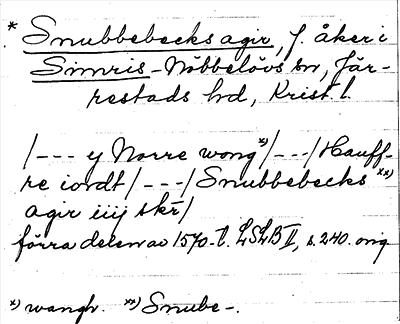 * Snubbebecks agir, f. åker i
Simris-Nöbbelövs sn, Jär-
restads hd, Krist. l.
/--- y Norre wong *)/---/Hauff-
re iordt/---/Snubbebecks **)
agir iiij skr/
förra delen av 1570-t. LSLB II, s. 240. orig
*) wangh. **) Snube-.